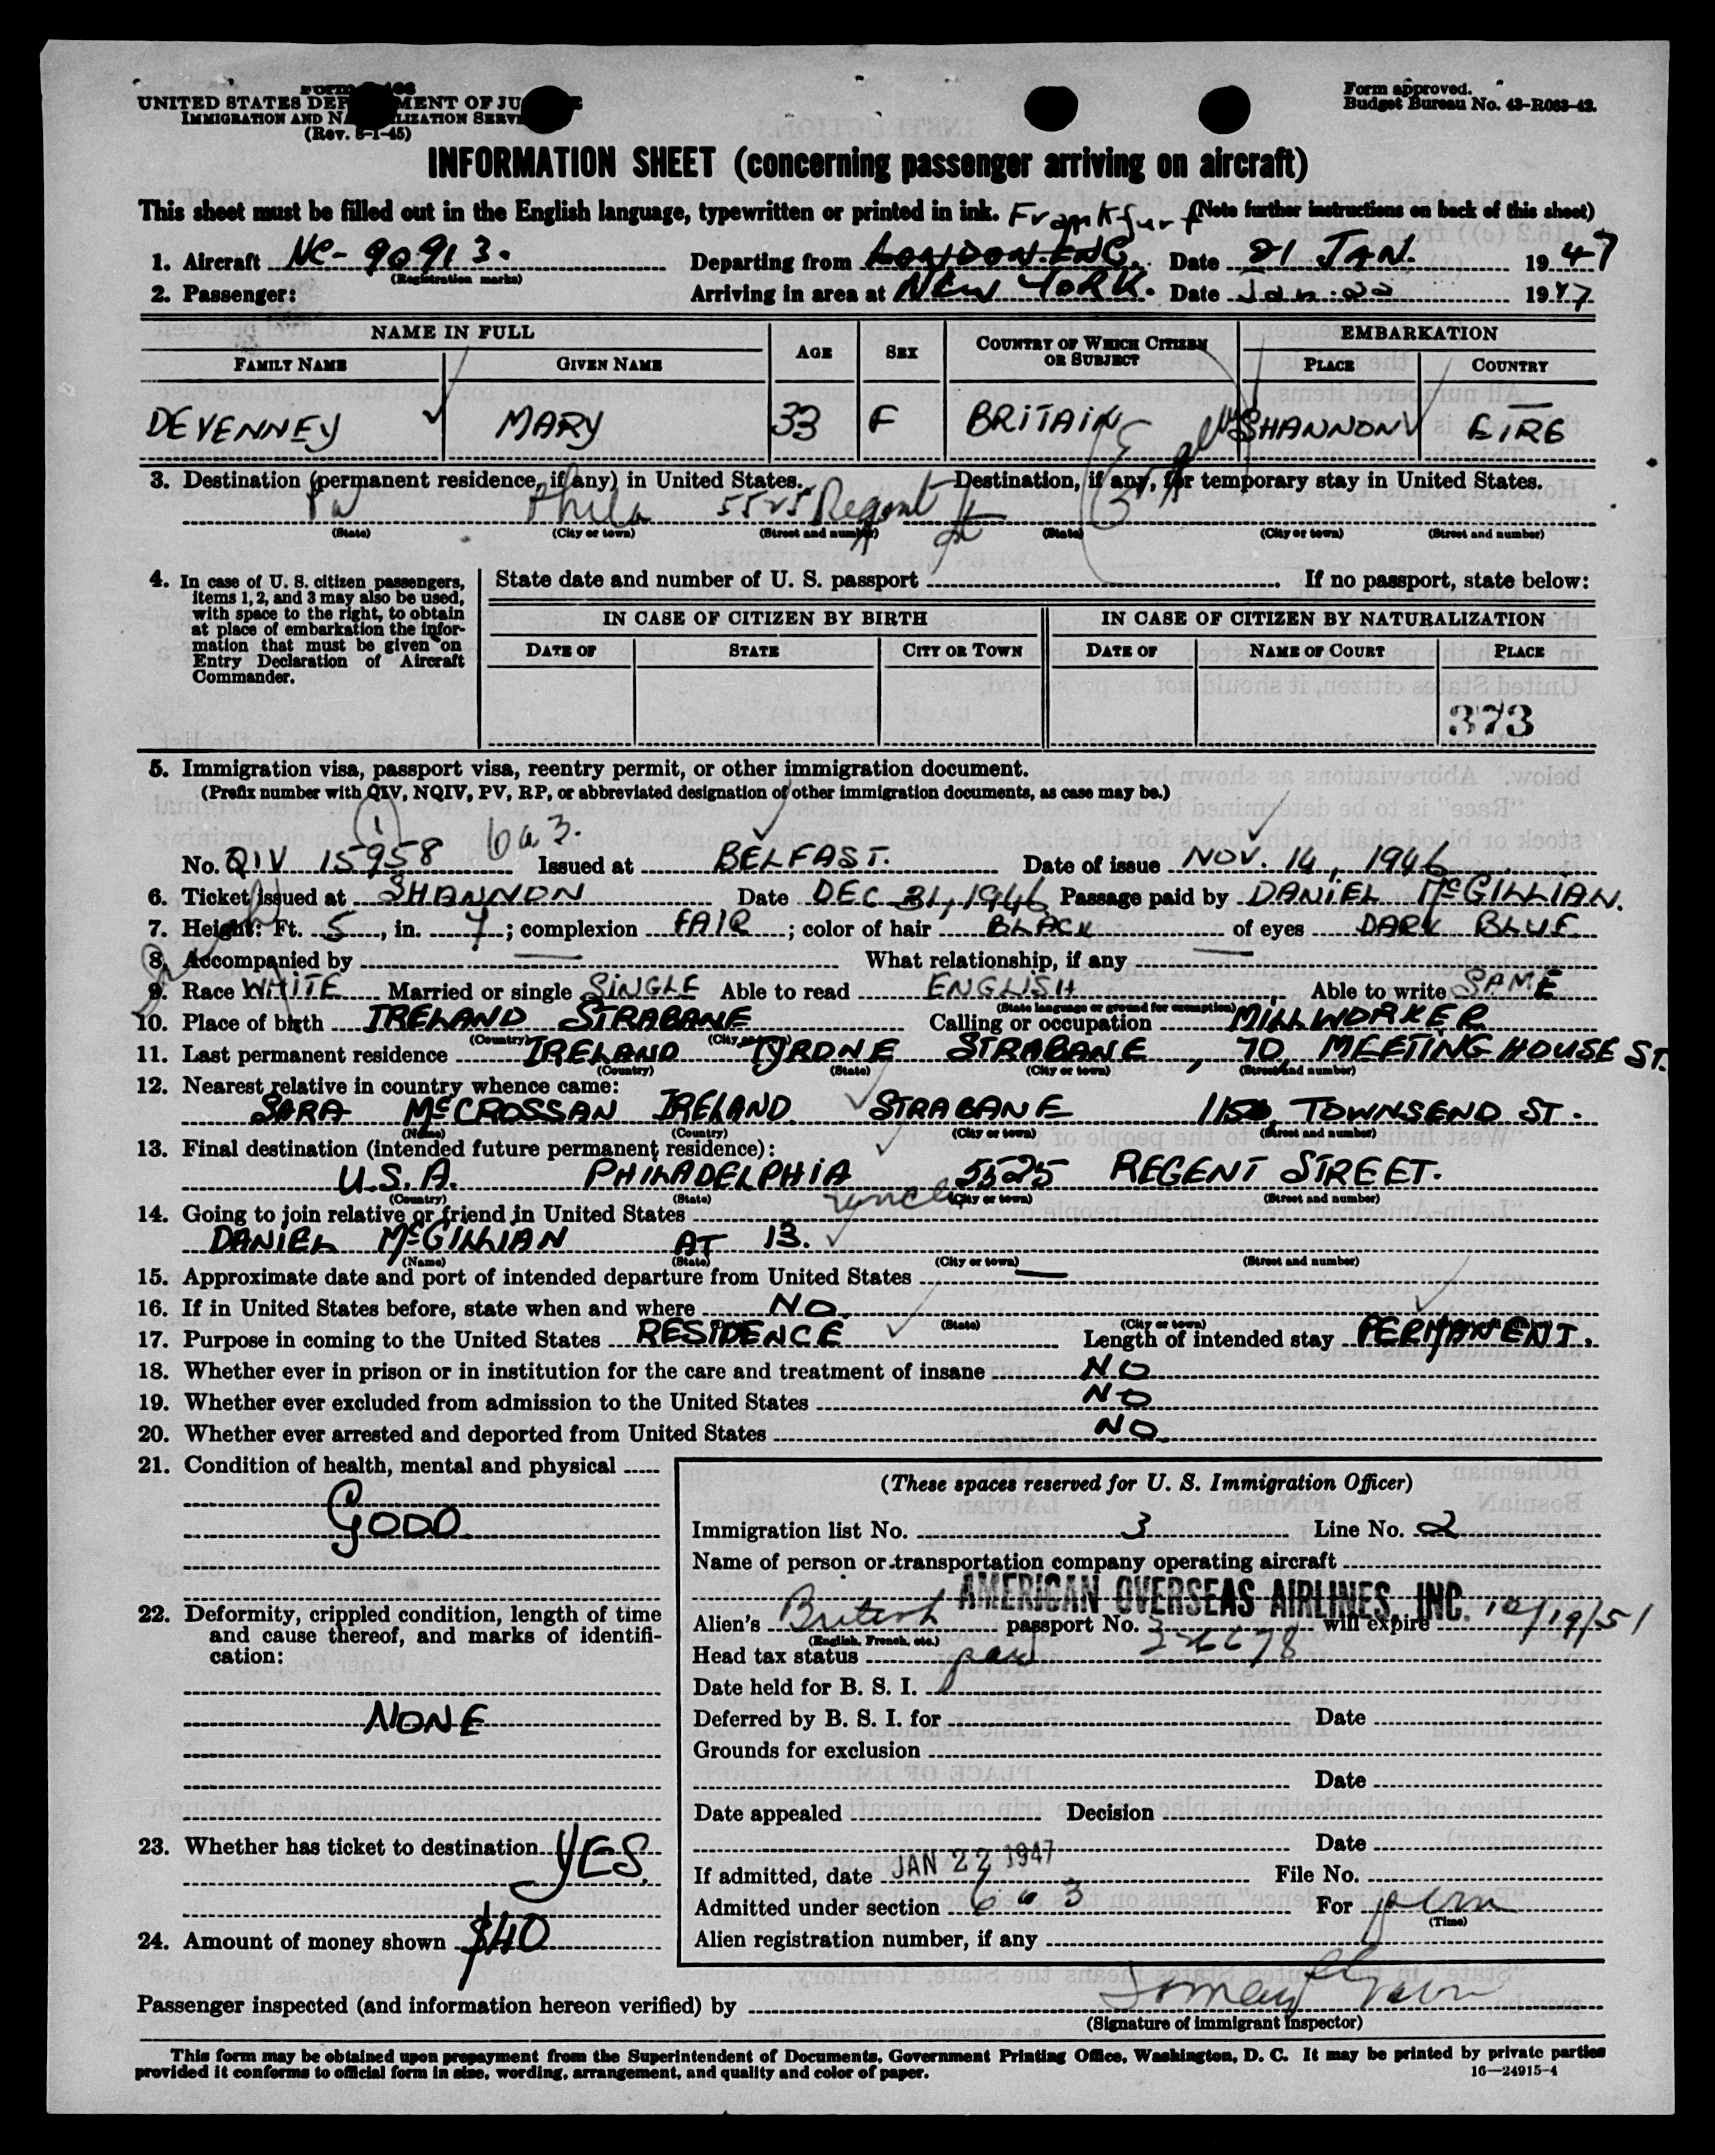 UNITED STATES DEP MENT OF JU E
IMMIGRATION AND NA LIZATION SERVI
(Rev. 8-1-45)
Form approved.
Budget Bureau No. 43-R063-42.
INFORMATION SHEET (concerning passenger arriving on aircraft)
This sheet must be filled out in the English language, typewritten or printed in ink. Frankfurt (Note further instructions on back of this sheet)
1. Aircraft NC-90913. (Registration marks) Departing from LONDON.ENG. Date 21 JAN. 1947
2. Passenger: Arriving in area at NEW YORK. Date Jan 22 1947
NAME IN FULL AGE SEX COUNTRY OF WHICH CITIZEN OR SUBJECT EMBARKATION
FAMILY NAME GIVEN NAME PLACE COUNTRY
DEVENNEY MARY 33 F BRITAIN SHANNON EIRE
3. Destination (permanent residence, if any) in United States. Destination, if any, for temporary stay in United States.
Pa Phila 5525 Regent St
(State) (City or town) (Street and number) (State) (City or town) (Street and number)
4. In case of U. S. citizen passengers, items 1, 2, and 3 may also be used, with space to the right, to obtain at place of embarkation the information that must be given on Entry Declaration of Aircraft Commander.
State date and number of U. S. passport If no passport, state below:
IN CASE OF CITIZEN BY BIRTH IN CASE OF CITIZEN BY NATURALIZATION
DATE OF STATE CITY OR TOWN DATE OF NAME OF COURT PLACE
373
5. Immigration visa, passport visa, reentry permit, or other immigration document.
(Prefix number with QIV, NQIV, PV, RP, or abbreviated designation of other immigration documents, as case may be.)
(1) 6a3.
No. QIV 15958 Issued at BELFAST. Date of issue NOV. 14, 1946
6. Ticket issued at SHANNON Date DEC 31, 1946 Passage paid by DANIEL McGILLIAN.
7. Height: Ft. 5, in. 4; complexion FAIR; color of hair BLACK of eyes DARK BLUE
8. Accompanied by — What relationship, if any —
9. Race WHITE Married or single SINGLE Able to read ENGLISH Able to write SAME
(State language or ground for exemption)
10. Place of birth IRELAND STRABANE Calling or occupation MILLWORKER
(Country) (City or town)
11. Last permanent residence IRELAND TYRONE STRABANE, 70, MEETING HOUSE ST.
(Country) (State) (City or town) (Street and number)
12. Nearest relative in country whence came:
SARA McCROSSAN IRELAND STRABANE 115, TOWNSEND ST.
(Name) (Country) (City or town) (Street and number)
13. Final destination (intended future permanent residence):
U.S.A. PHILADELPHIA 5525 REGENT STREET.
(Country) (State) (City or town) (Street and number)
14. Going to join relative or friend in United States uncle
DANIEL McGILLIAN AT 13.
(Name) (State) (City or town) (Street and number)
15. Approximate date and port of intended departure from United States —
16. If in United States before, state when and where NO
(State) (City or town)
17. Purpose in coming to the United States RESIDENCE Length of intended stay PERMANENT.
18. Whether ever in prison or in institution for the care and treatment of insane NO
19. Whether ever excluded from admission to the United States NO
20. Whether ever arrested and deported from United States NO
21. Condition of health, mental and physical
GOOD
22. Deformity, crippled condition, length of time and cause thereof, and marks of identification:
NONE
23. Whether has ticket to destination YES.
24. Amount of money shown $40
(These spaces reserved for U. S. Immigration Officer)
Immigration list No. 3 Line No. 2
Name of person or transportation company operating aircraft
AMERICAN OVERSEAS AIRLINES, INC.
Alien's British passport No. will expire 12/19/51
(English, French, etc.)
Head tax status paid
Date held for B. S. I.
Deferred by B. S. I. for Date
Grounds for exclusion
Date
Date appealed Decision
Date
If admitted, date JAN 22 1947 File No.
Admitted under section 6 a 3 For perm
(Time)
Alien registration number, if any
Passenger inspected (and information hereon verified) by
(Signature of immigrant inspector)
This form may be obtained upon prepayment from the Superintendent of Documents, Government Printing Office, Washington, D. C. It may be printed by private parties
provided it conforms to official form in size, wording, arrangement, and quality and color of paper.
16—24915-4